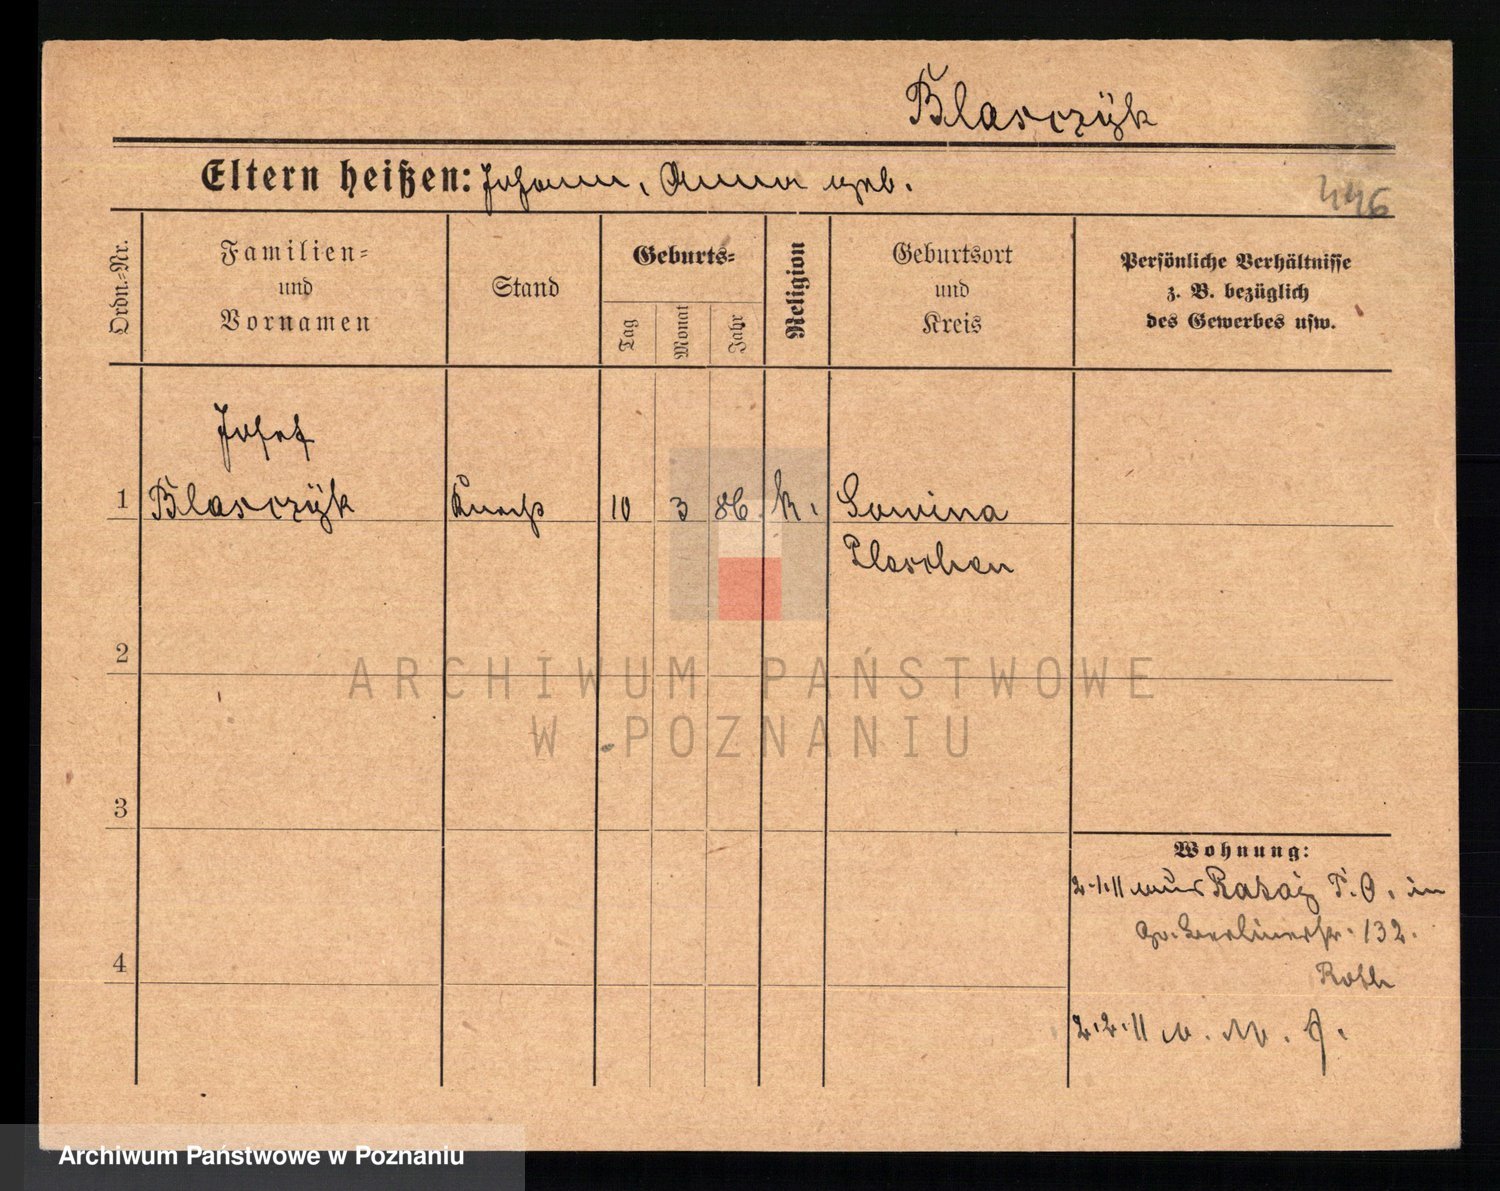 Blasczÿk
Eltern heißen: Johann, Anna geb.
446
Ordn.-Nr.
Familien-
und
Vornamen
Stand
Geburts-
Tag
Monat
Jahr
Religion
Geburtsort
und
Kreis
Persönliche Verhältnisse
z. B. bezüglich
des Gewerbes usw.
Josef
1 Blasczÿk Knecht 10 3 86. k. Sowina
Pleschen
2
ARCHIWUM PAŃSTWOWE
W POZNANIU
3
Wohnung:
2.1.11 aus Rataj P. O. in
Gr. Berlinerstr. 132.
Roth
4
2.2.11
Archiwum Państwowe w Poznaniu